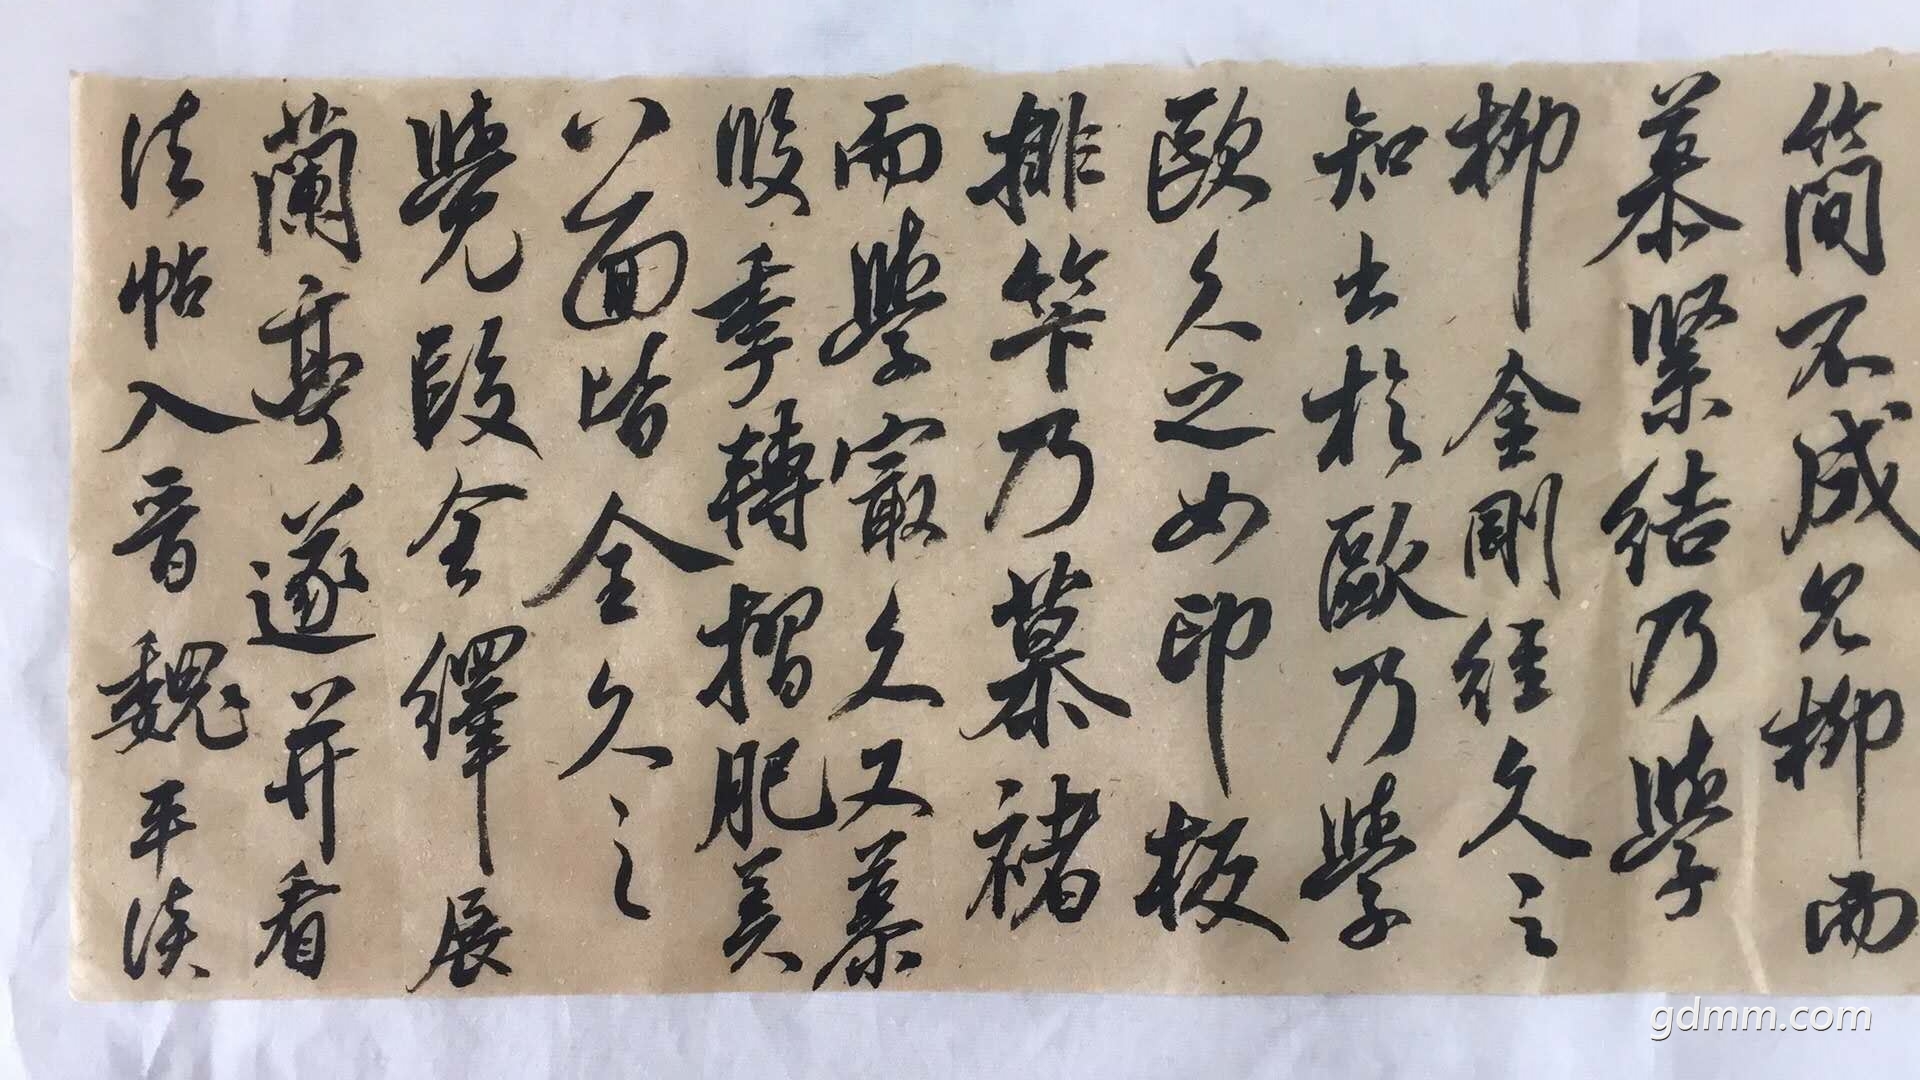 簡不成見柳而
慕緊結乃學
柳金剛經久之
知出於歐乃學
歐久之如印板
排筭乃慕褚
而學最久又慕
段季轉摺肥美
八面皆全久之
覺段全繹展
蘭亭遂并看
法帖入晉魏平淡
gdmm.com